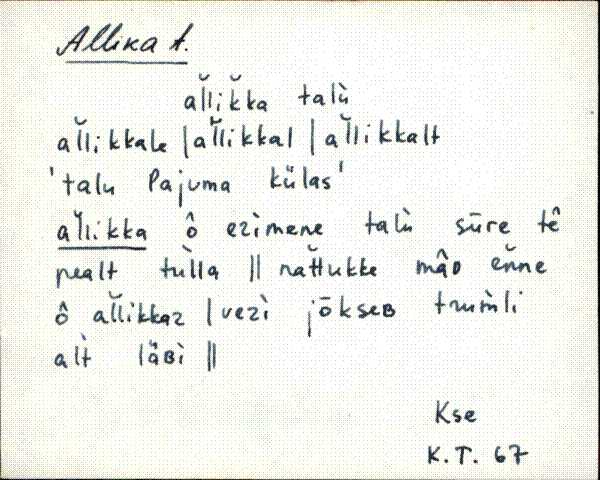 Allika t.
al̆lik̆ka talù
al̆likkale | al̆likkal | al̆likkalt
'talu Pajuma külas'
al̆likka ô ezìmene talù sūre tê
pealt tùlla || nat̆tukke mâᴅ en̆ne
ô al̆likkaz | vezì jōkseʙ trum̀li
alt̀ läʙì ||
Kse
K.T. 67